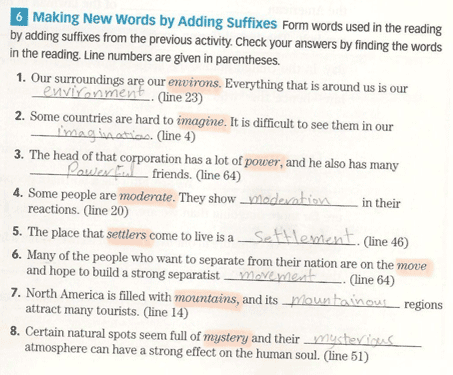 6 Making New Words by Adding Suffixes Form words used in the reading
by adding suffixes from the previous activity. Check your answers by finding the words
in the reading. Line numbers are given in parentheses.
1. Our surroundings are our environs. Everything that is around us is our
environment. (line 23)
2. Some countries are hard to imagine. It is difficult to see them in our
imagination. (line 4)
3. The head of that corporation has a lot of power, and he also has many
Powerful friends. (line 64)
4. Some people are moderate. They show moderation in their
reactions. (line 20)
5. The place that settlers come to live is a settlement. (line 46)
6. Many of the people who want to separate from their nation are on the move
and hope to build a strong separatist movement. (line 64)
7. North America is filled with mountains, and its mountainous regions
attract many tourists. (line 14)
8. Certain natural spots seem full of mystery and their mysterious
atmosphere can have a strong effect on the human soul. (line 51)